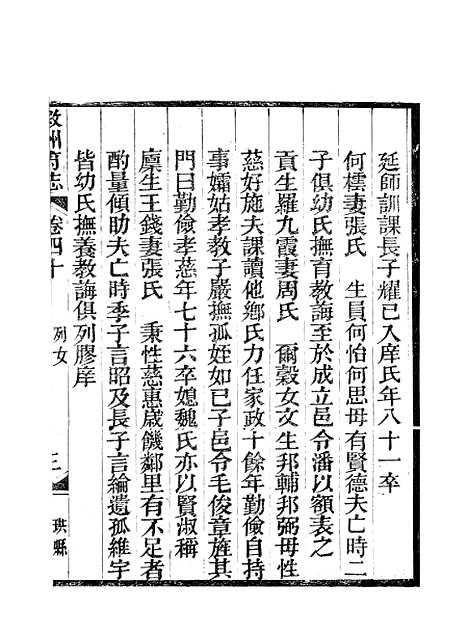 延師訓課長子耀已入庠氏年八十一卒
何樗妻張氏　生員何怡何思母有賢德夫亡時二
子俱幼氏撫育教誨至於成立邑令潘以額表之
貢生羅九霞妻周氏　爾穀女文生邦輔邦弼母性
慈好施夫課讀他鄉氏力任家政十餘年勤儉自持
事孀姑孝教子嚴撫孤姪如已子邑令毛俊章旌其
門曰勤儉孝慈年七十六卒媳魏氏亦以賢淑稱
廩生王錢妻張氏　秉性慈惠歲饑鄰里有不足者
酌量傾助夫亡時季子言昭及長子言綸遺孤維宇
皆幼氏撫養教誨俱列膠庠
敘州府志　卷四十　列女　三　珙縣